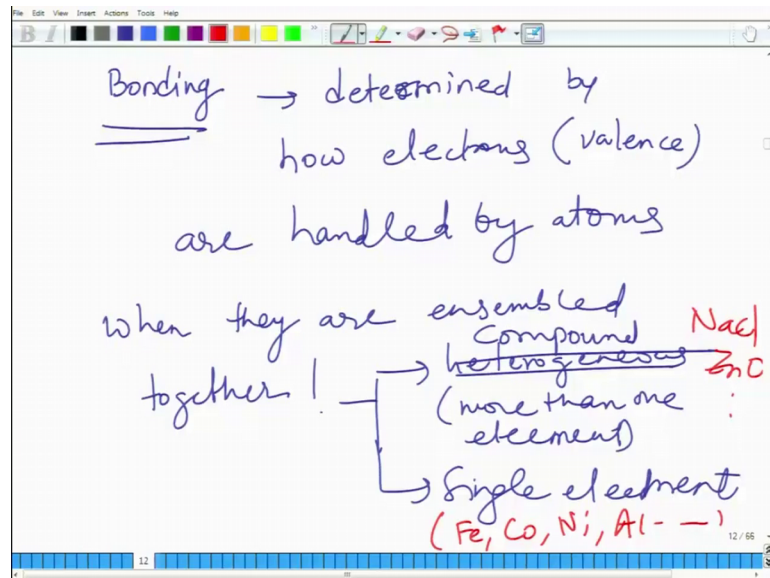 File Edit View Insert Actions Tools Help
B I
Bonding → determined by
how electrons (valence)
are handled by atoms
when they are ensembled
together!
Compound NaCl
heterogeneous ZnO
(more than one
eleement)
Single eleement
(Fe, Co, Ni, Al - —)
12/66
12